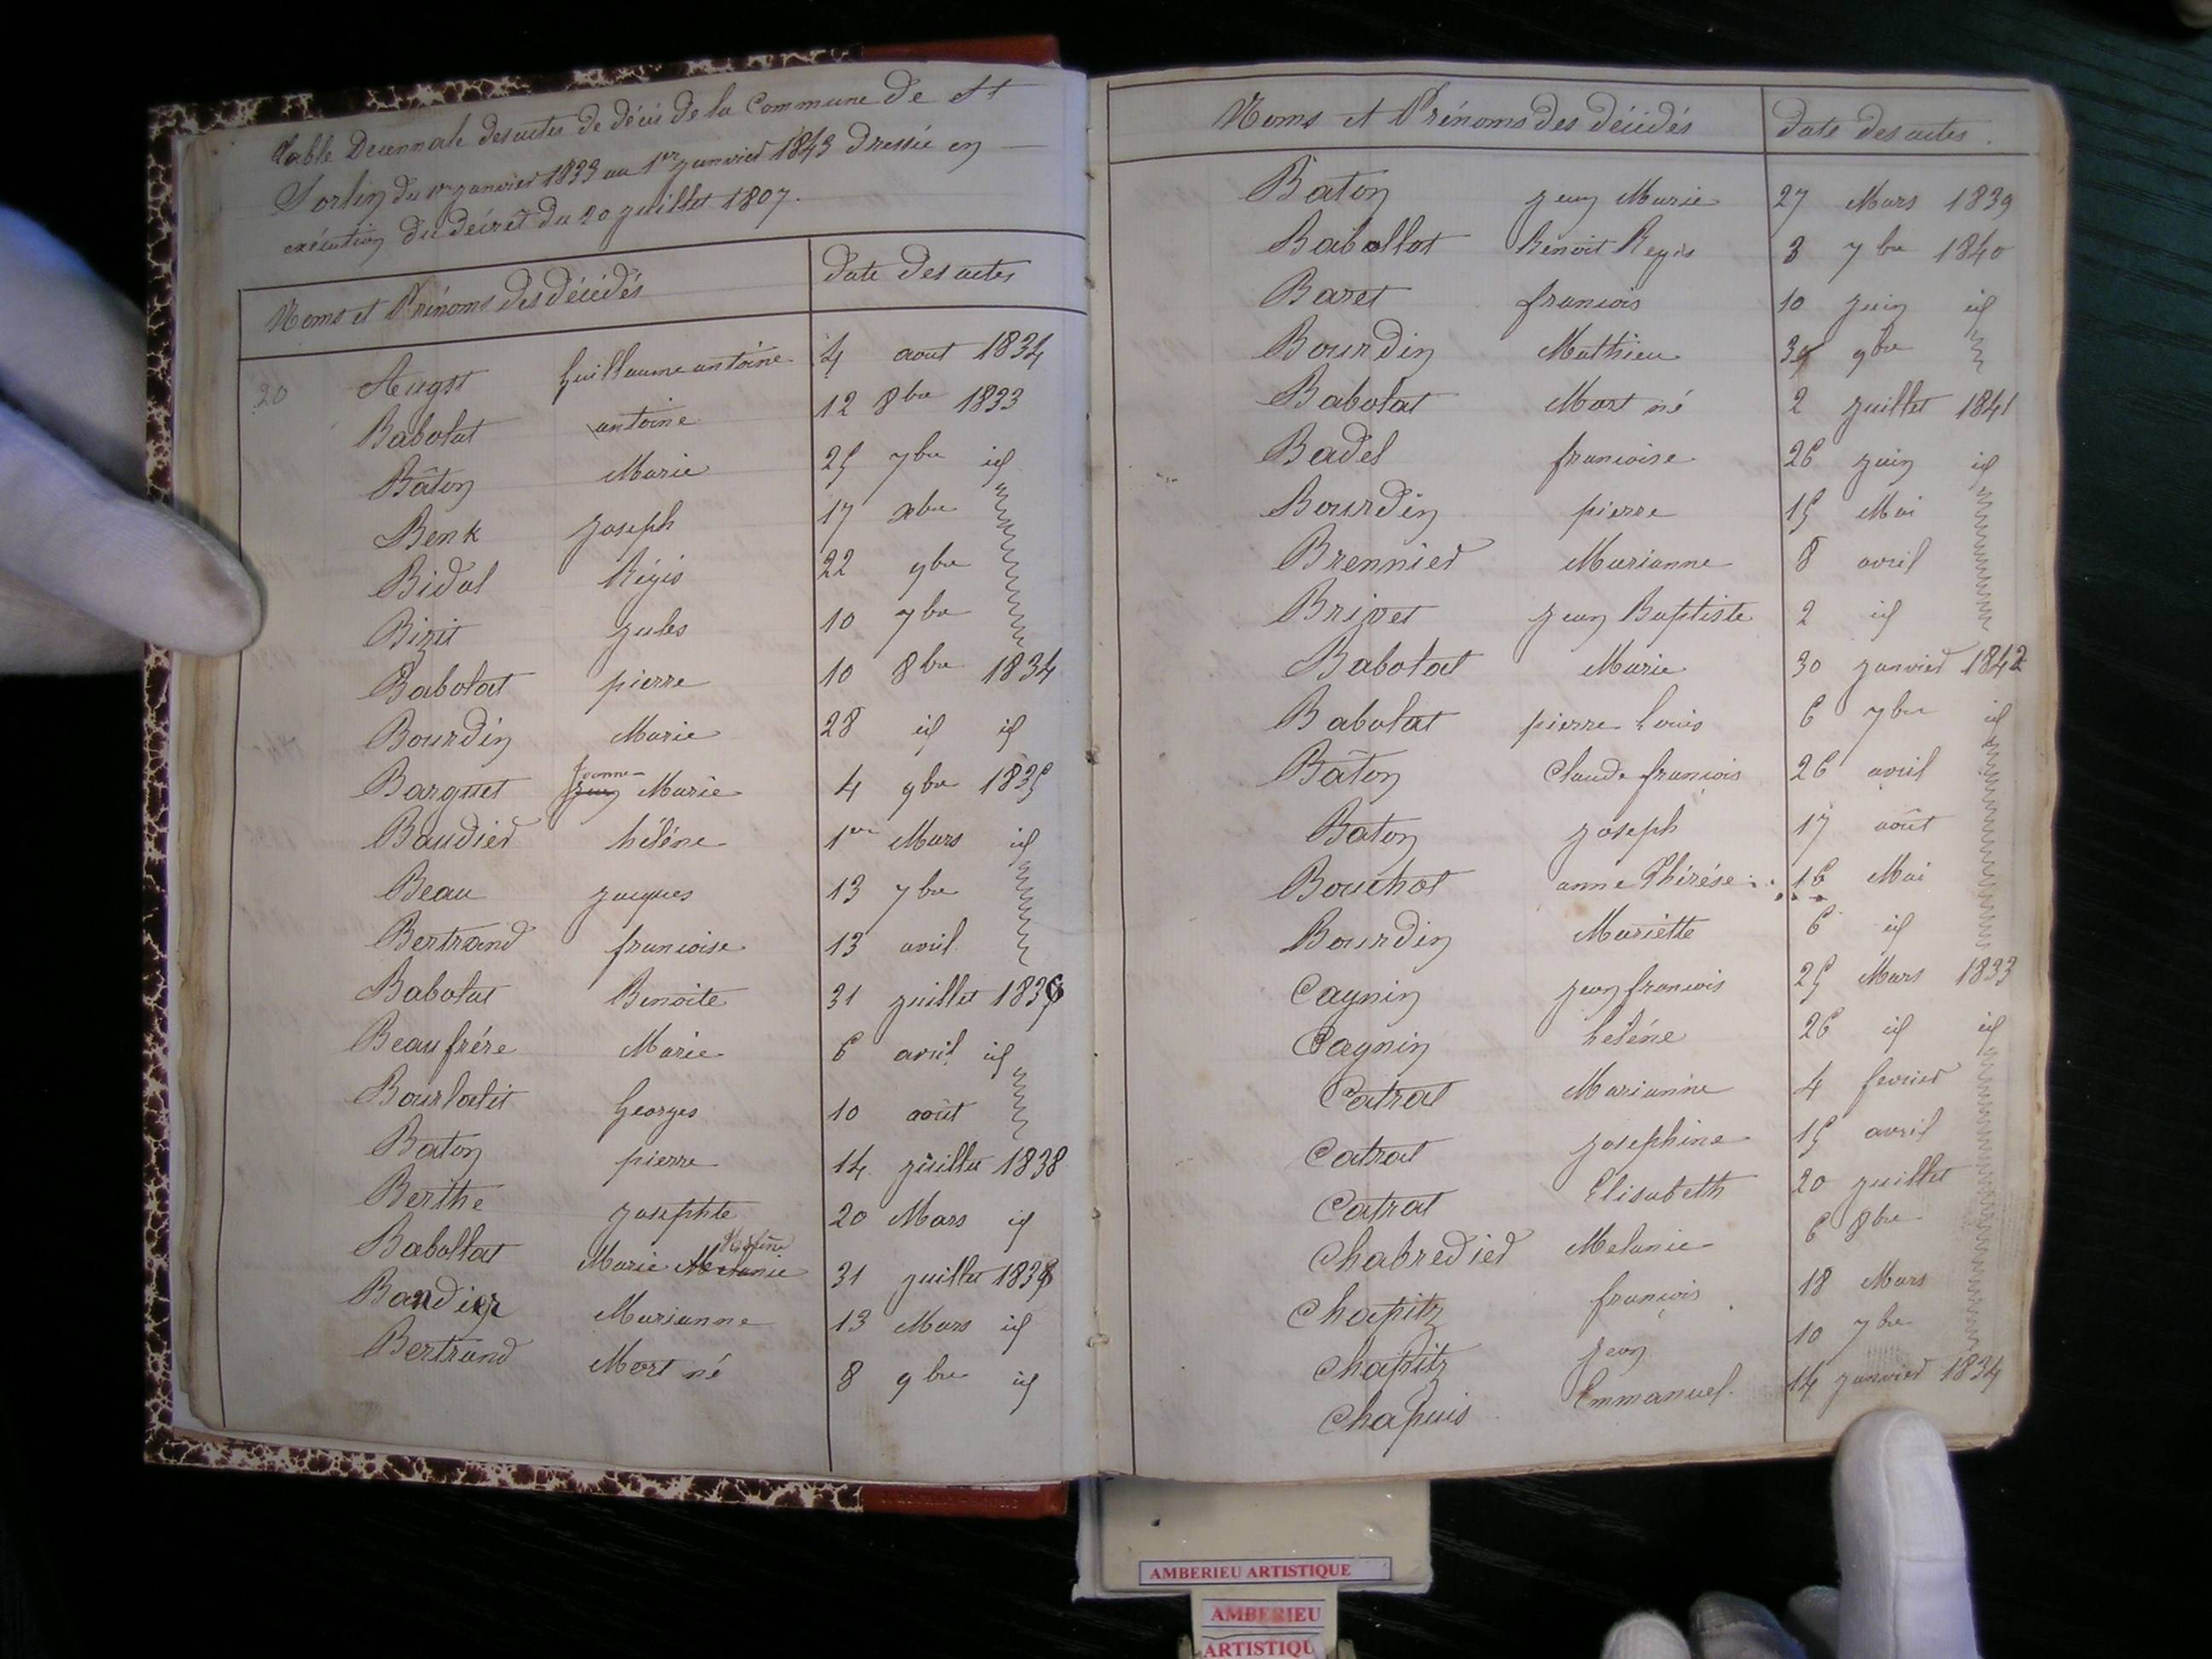 Table Decennale des actes de décès de la Commune de St
Sorlin du 1er janvier 1833 au 1er janvier 1843 Dressée en
exécution du Décret du 20 juillet 1807.
Noms et Prénoms des décédés date des actes
20 Augst Guillaume antoine 4 aout 1834
Babolat antoine 12 8bre 1833
Bâton Marie 25 7bre id
Benk joseph 17 xbre
Bidal Régis 22 9bre
Bizit jules 10 7bre
Babolat pierre 10 8bre 1834
Bourdin Marie 28 id id
Jeanne
Barquet jean Marie 4 9bre 1835
Baudier héléne 1er Mars id
Beau jacques 13 7bre
Bertrand francoise 13 avril
Babolat Benoite 31 juillet 1836
Beaufrére Marie 6 avril id
Bourlatit Georges 10 août
Baton pierre 14 juillet 1838
Berthe josephte 20 Mars id
Babollat Marie Melanie 31 juillet 1838
Bandier Marianne 13 Mars id
Bertrand Mort né 8 9bre id
Noms et Prénoms des décédés date des actes.
Baton jean Marie 27 Mars 1839
Babollat Benoit Regis 3 7bre 1840
Baret francois 10 juin id
Bourdin Mathieu 9bre
Babolat Mort né 2 juillet 1841
Badel francoise 26 juin id
Bourdin pierre 15 Mai
Brennier Marianne 8 avril
Brivet jean Baptiste 2 id
Babolat Marie 30 janvier 1842
Babolat pierre Louis 6 7bre id
Bâton Claude françois 26 avril
Baton joseph 17 août
Bouchot anne Thérése 16 Mai
Bourdin Mariette 6 id
Cagnin jean francois 25 Mars 1833
Cagnin heléne 26 id id
Catrat Marianne 4 fevrier
Catrat josephine 15 avril
Catrat Elisabeth 20 juillet
Chabredier Melanie 6 8bre
Chapitz françois 18 Mars
Chapitz jean 10 7bre
Chapuis Emmanuel 14 janvier 1834
AMBERIEU ARTISTIQUE
AMBERIEU
ARTISTIQU